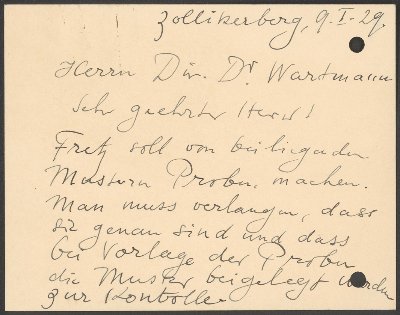 Zollikerberg, 9. I. 29.
Herrn Dir. Dr. Wartmann
Sehr geehrter Herr!
Fretz soll von beiliegenden
Mustern Proben machen.
Man muss verlangen, dass
sie genau sind und dass
bei Vorlage der Proben
die Muster beigelegt werden
zur Kontrolle.